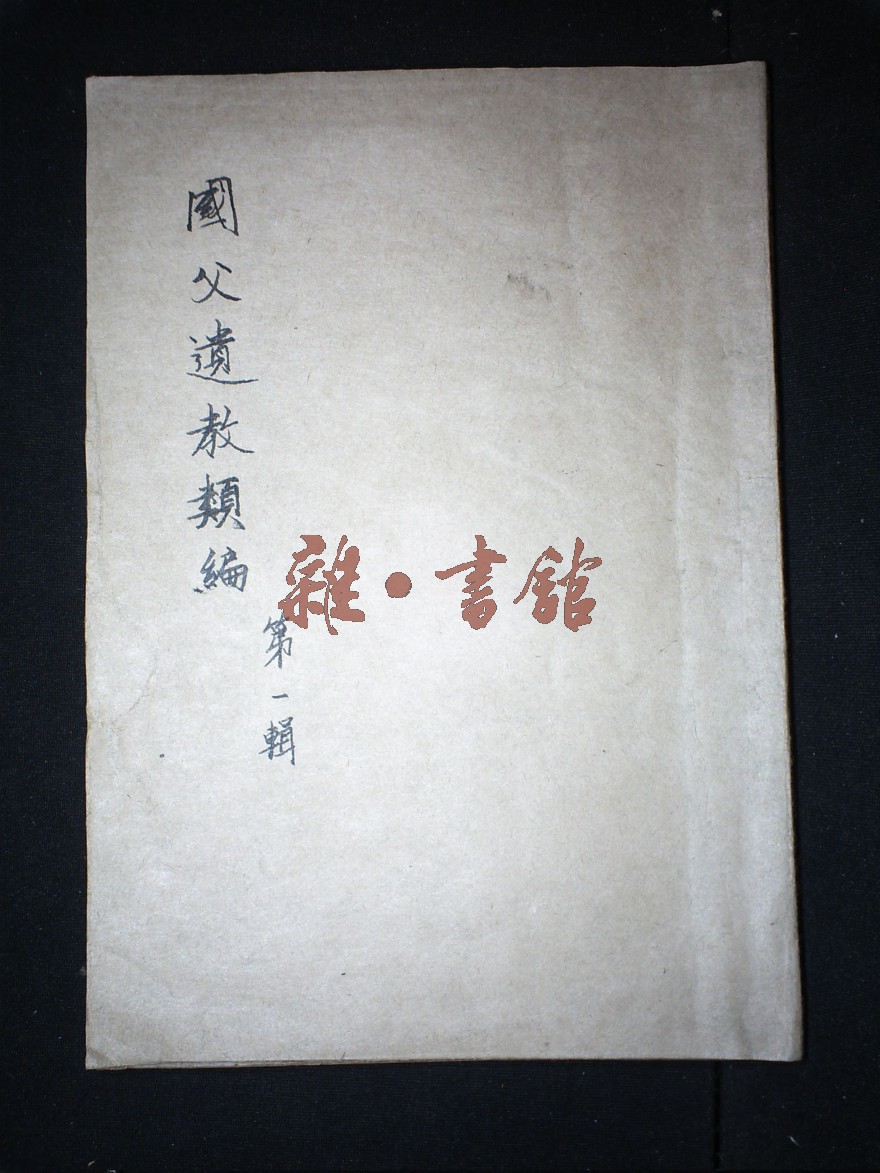 國父遺教類編
第一輯
雜·書館